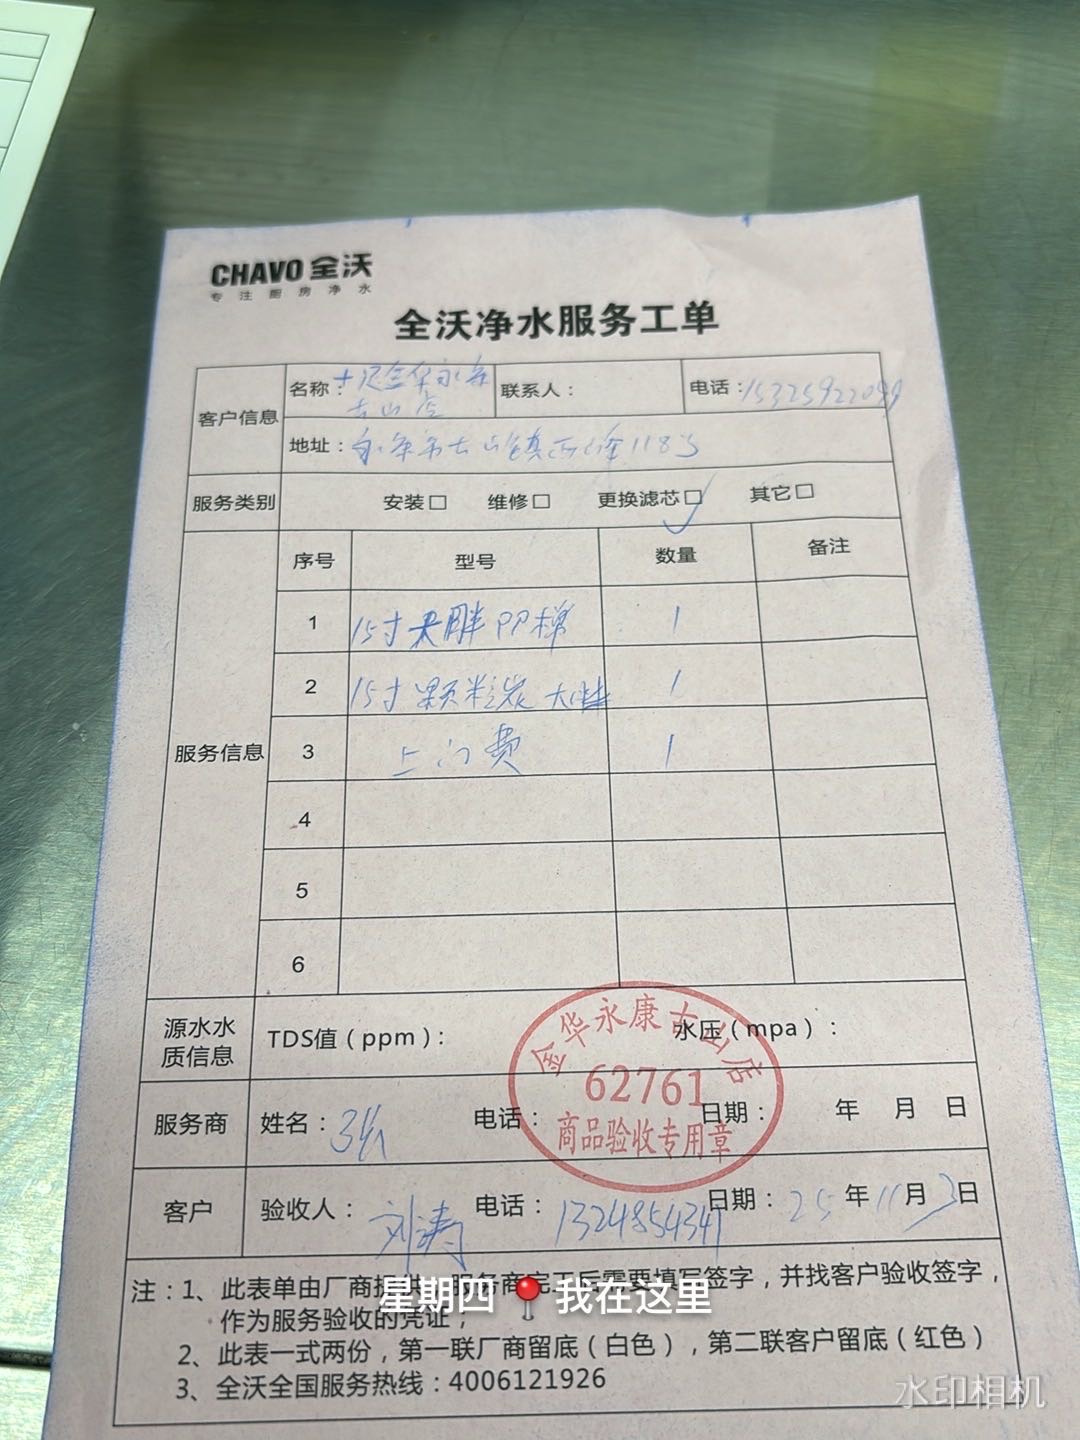 CHAVO 全沃
专注厨房净水
全沃净水服务工单
客户信息
名称：
金华永康
古山店
联系人：
电话：
地址：永康市古山镇 118号
服务类别 安装□ 维修□ 更换滤芯□ ✓ 其它□
服务信息
序号 型号 数量 备注
1 15寸大胖PP棉 1
2 15寸颗粒炭大胖 1
3 上门费 1
4
5
6
源水水质信息 TDS值（ppm）： 水压（mpa）：
金华永康古山店
62761
商品验收专用章
服务商 姓名： 电话： 日期： 年 月 日
客户 验收人：刘涛 电话：13248454341 日期：25年11月3日
注：1、此表单由厂商提供，服务商完工后需要填写签字，并找客户验收签字，
作为服务验收的凭证；
2、此表一式两份，第一联厂商留底（白色），第二联客户留底（红色）
3、全沃全国服务热线：4006121926
星期四 📍我在这里
水印相机